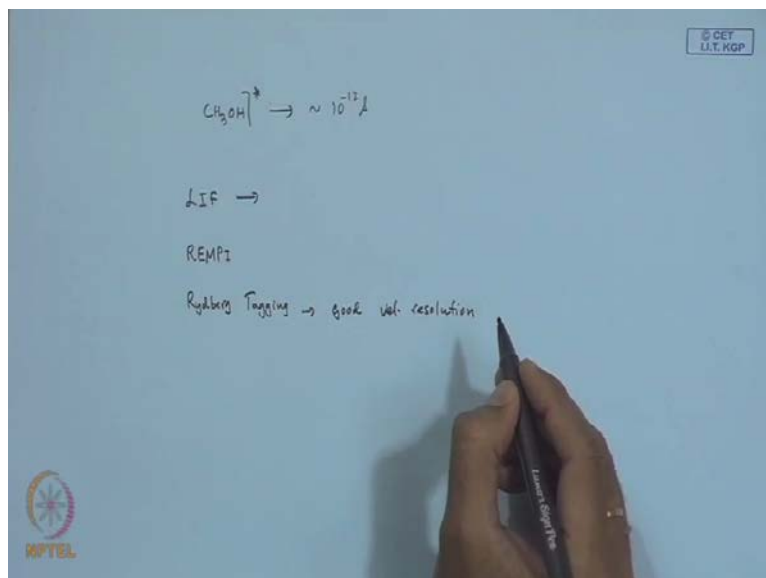 © CET
I.I.T. KGP
CH₃OH]* → ~ 10⁻¹² s
LIF →
REMPI
Rydberg Tagging → good vel. resolution
Luxor Sign Pen
NPTEL